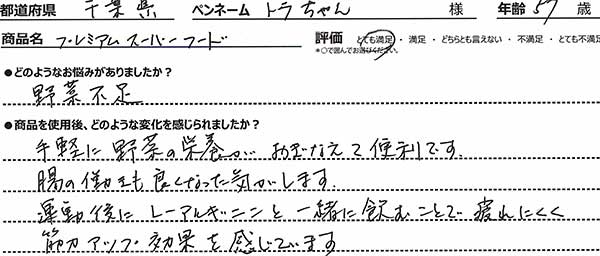 都道府県 千葉県 ペンネーム トラちゃん 様 年齢 57 歳
商品名 プレミアムスーパーフード 評価 とても満足 ・ 満足 ・ どちらとも言えない ・ 不満足 ・ とても不満
*○で囲んでお選びください。
●どのようなお悩みがありましたか?
野菜不足
●商品を使用後、どのような変化を感じられましたか?
手軽に野菜の栄養が おぎなえて便利です。
腸の働きも良くなった気がします。
運動後にL-アルギニンと一緒に飲むことで疲れにくく
筋力アップ効果を感じています